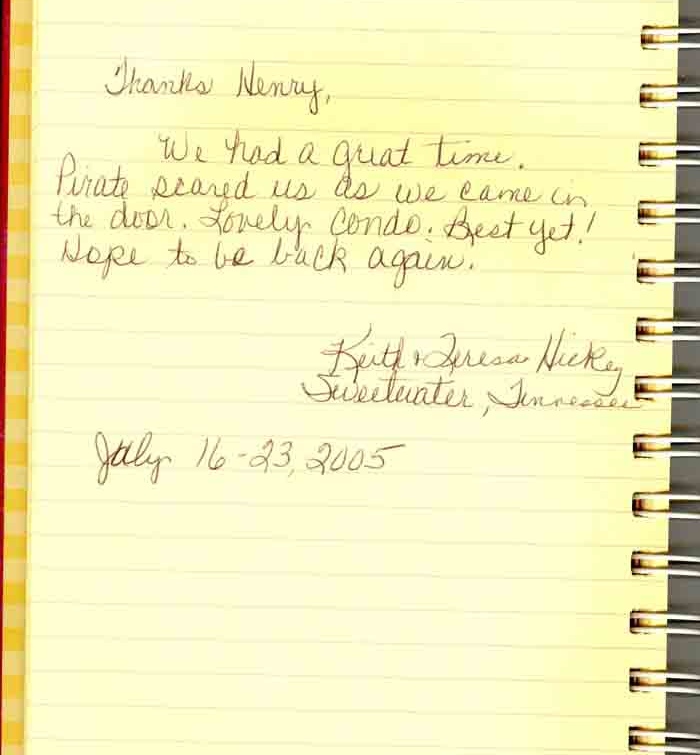 Thanks Henry,
We had a great time.
Pirate scared us as we came in
the door. Lovely Condo. Best yet!
Hope to be back again.
Keith & Teresa Hickey
Sweetwater, Tennessee
July 16-23, 2005